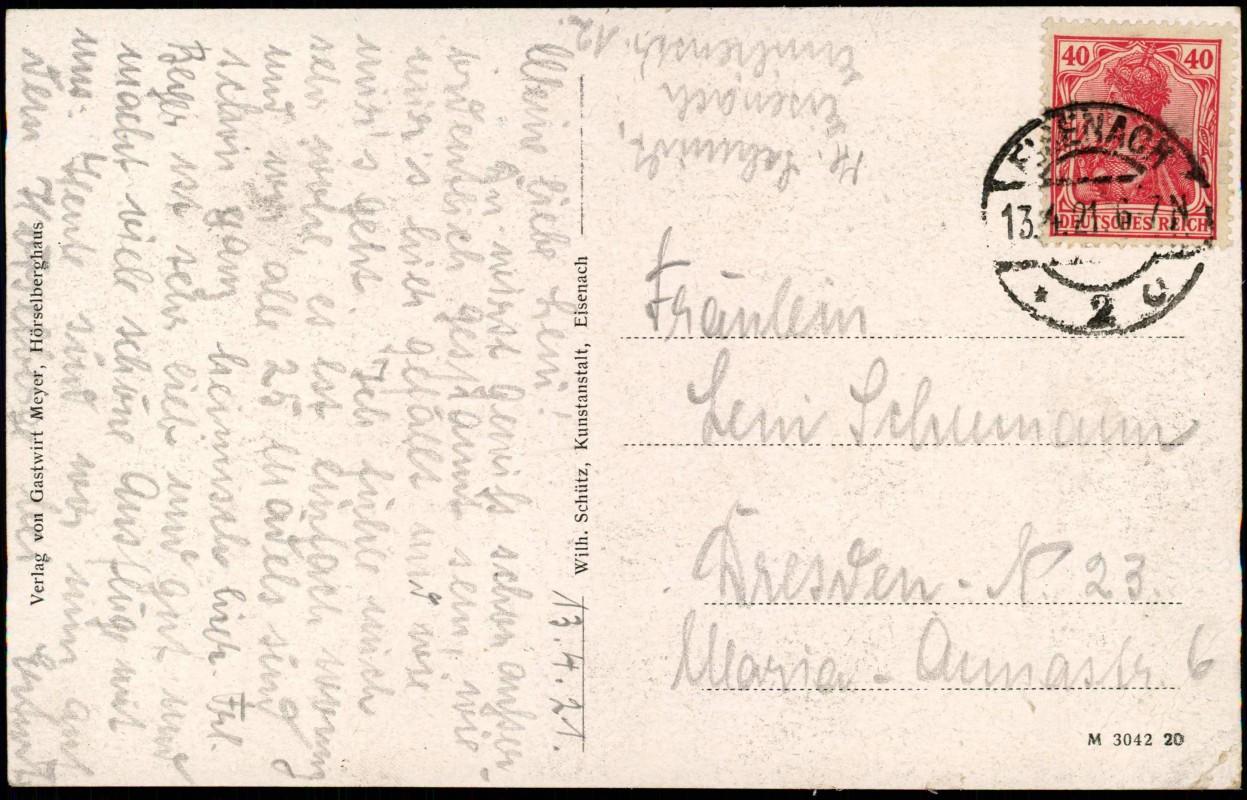 13.4.21.
Meine liebe Leni!
Du wirst gewiß schon außer-
ordentlich gespannt sein, wie
mir's hier gefällt und wie
mir's geht. Ich fühle mich
sehr wohl, es ist einfach wonnig
und wir alle 25 Mädels sind
schon ganz heimisch hier. Frl.
Beyer ist sehr lieb und gut und
macht viele schöne Ausflüge mit
uns. Heute sind wir nun auf
dem
M. Schmidt,
Eisenach
12.
40 40
DEUTSCHES REICH
EISENACH
13.4.21. 6-7 N
* 2 c
Fräulein
Leni Schumann
Dresden - N. 23.
Maria - Annastr. 6
Verlag von Gastwirt Meyer, Hörselberghaus
Wilh. Schütz, Kunstanstalt, Eisenach
M 3042 20